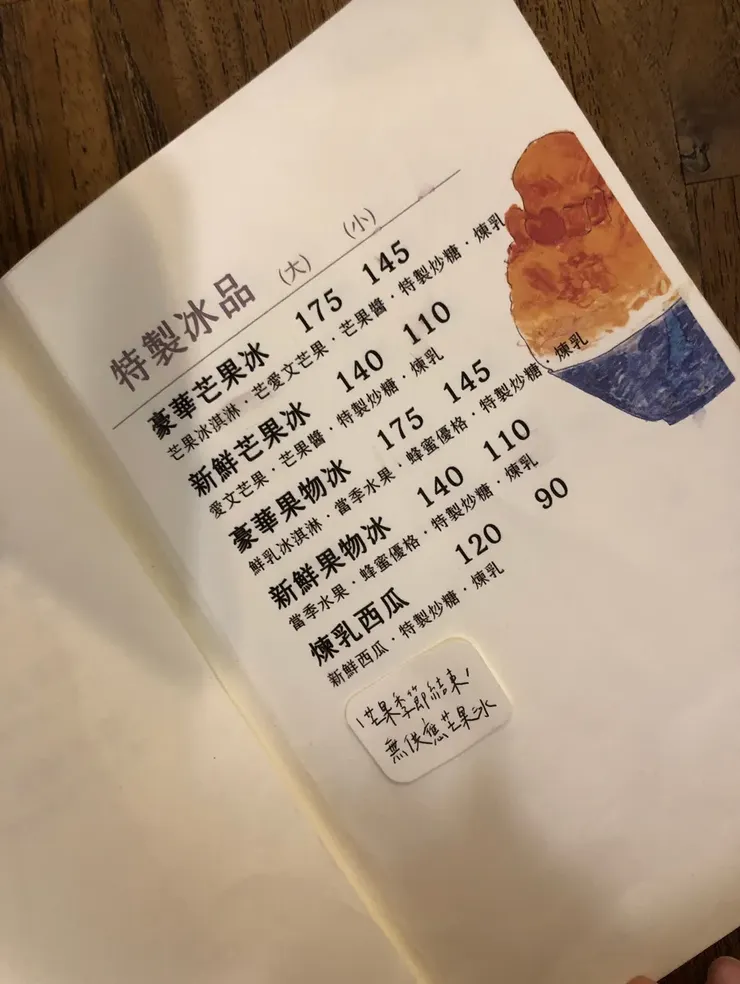 特製冰品 (大) (小)
豪華芒果冰 175 145
芒果冰淇淋·芒愛文芒果·芒果醬·特製炒糖·煉乳
新鮮芒果冰 140 110
愛文芒果·芒果醬·特製炒糖·煉乳
豪華果物冰 175 145
鮮乳冰淇淋·當季水果·蜂蜜優格·特製炒糖·煉乳
新鮮果物冰 140 110
當季水果·蜂蜜優格·特製炒糖·煉乳
煉乳西瓜 120 90
新鮮西瓜·特製炒糖·煉乳
芒果季節結束,
無供應芒果冰